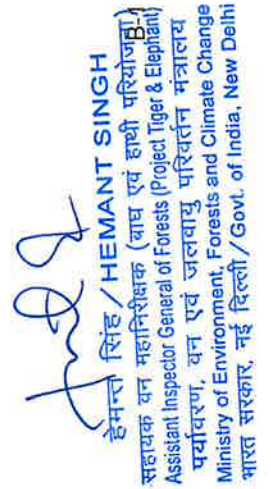 हेमन्त सिंह / HEMANT SINGH
सहायक वन महानिरीक्षक (बाघ एवं हाथी परियोजना)
B-1
Assistant Inspector General of Forests (Project Tiger & Elephant)
पर्यावरण, वन एवं जलवायु परिवर्तन मंत्रालय
Ministry of Environment, Forests and Climate Change
भारत सरकार, नई दिल्ली / Govt. of India, New Delhi